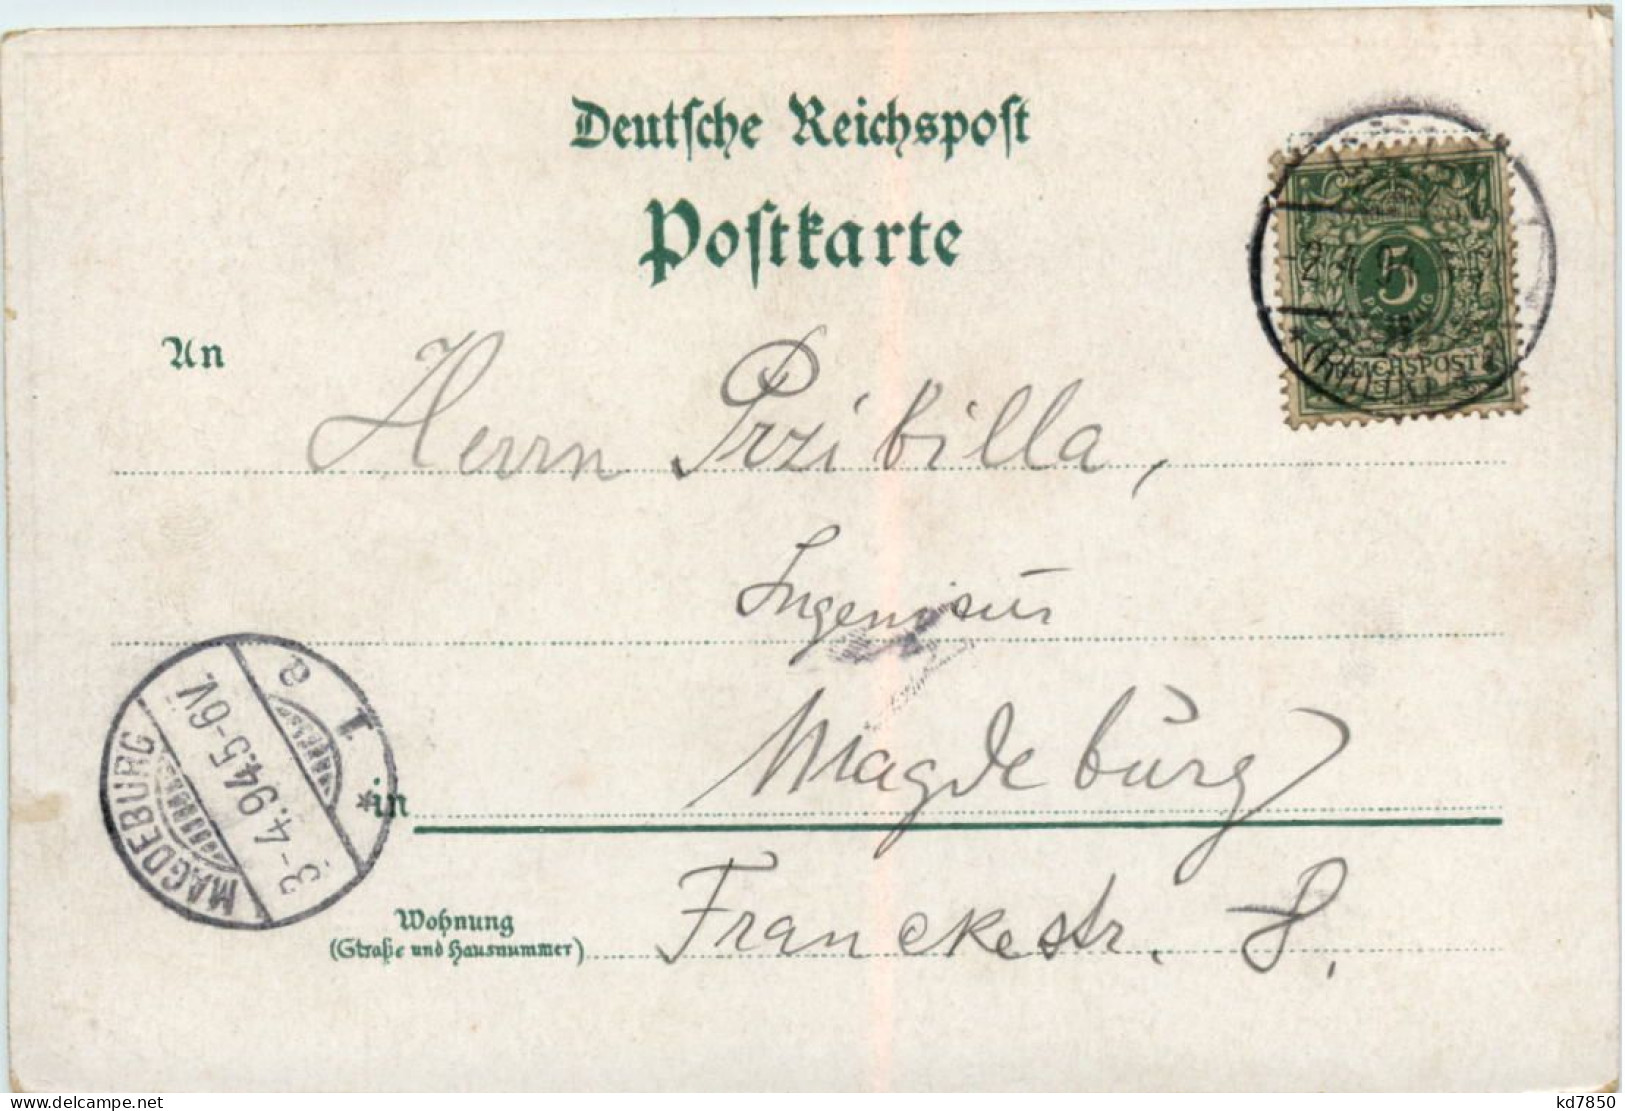 Deutsche Reichspost
Postkarte
An
Herrn Przibilla,
Ingenieur
in Magdeburg
Wohnung
(Straße und Hausnummer)
Franckestr. 8.
5
PFENNIG
REICHSPOST
-2 4 94
MAGDEBURG
3-4.94.5-6V.
* 1 a
www.delcampe.net
kd7850